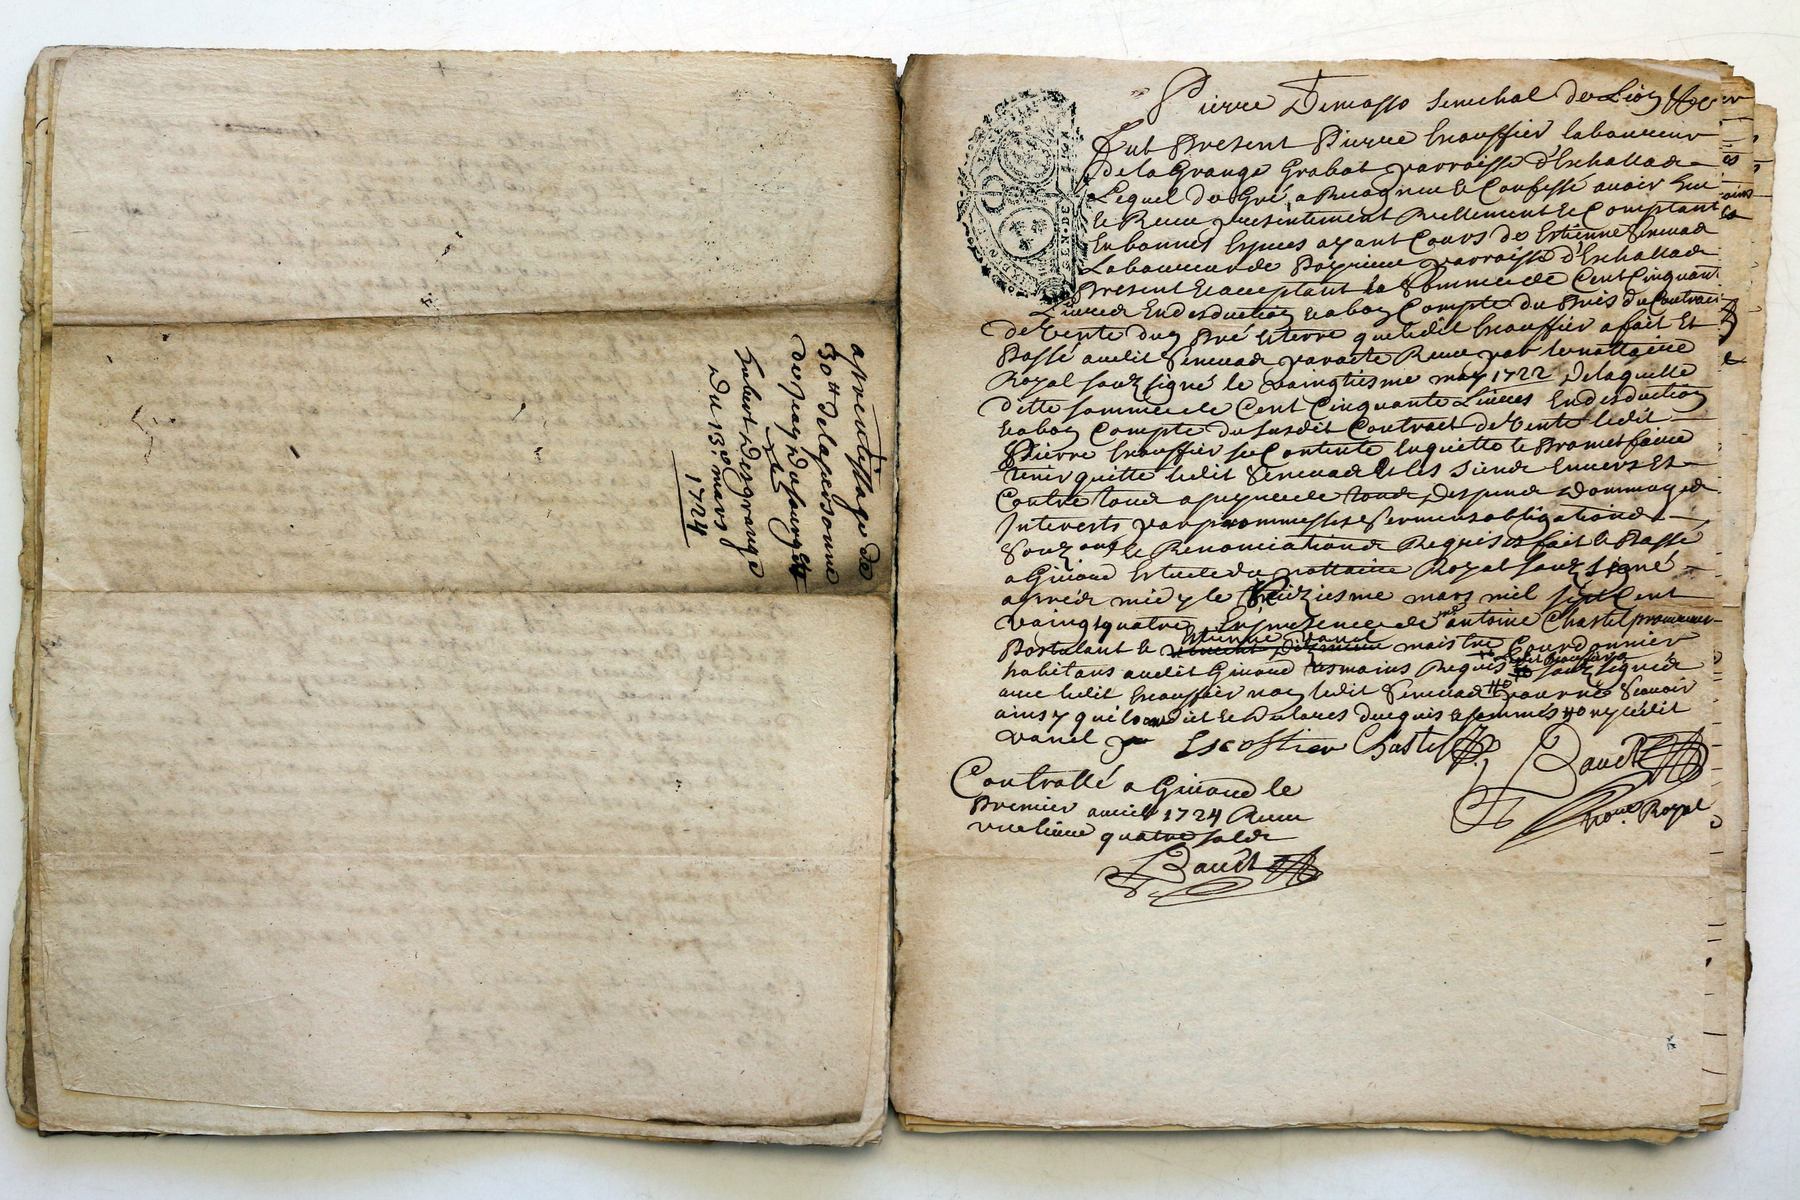 apprentissage de
30ᵗᵗ de la personne
de Jean Dafourg
et de
hubert Desgrange
Du 13ᵉ mars
1724
Pierre Demasso Senechal de Lion
Fut Present Pierre laboureur
de la Grange Grabat parroisse d'Eschallad
Lequel de Gré a Recogneu et Confessé avoir Eu
et Receu presentement Reellement et Comptant
En bonnes Especes ayant Cours de Estienne
Laboureur de parroisse d'Eschallad
Present et acceptant la Somme de Cent Cinquant
Livres En desduction et a bon Compte du Pris du Contract
de Vente du Pré et terre que ledit a fait Et
Passé audit par acte Receu par le nottaire
Royal souzsigné le vaingtiesme may 1722 De laquelle
ditte somme de Cent Cinquante Livres En desduction
et a bon Compte du susdit Contract de Vente ledit
Pierre se Contente En quitte et Promet faire
tenir quitte ledit Et les Siens Envers Et
Contre tous a peyne de tous Despens Dommages
Interests par promesses Serment obligations
Renonciations Requises fait et Passé
a Givord Estude du nottaire Royal souzsigné
apres midy le treiziesme mars mil sept Cent
vaingt quatre En presence de mᵉ antoine Chastel procureur
Postulant et Estienne Vanel maistre Courdonnier
habitans audit Givord tesmoins Requis souzsignés
avec ledit non ledit pour ne Scavoir
ainsy qu'il a dit et Declaré Enquis et sommés ny ledit
vanel Escoffier Chastel
Baudt
noᵗʳᵉ Royal
Controllé a Givord le
Premier avril 1724 Receu
une livre quatre solds
Baudt